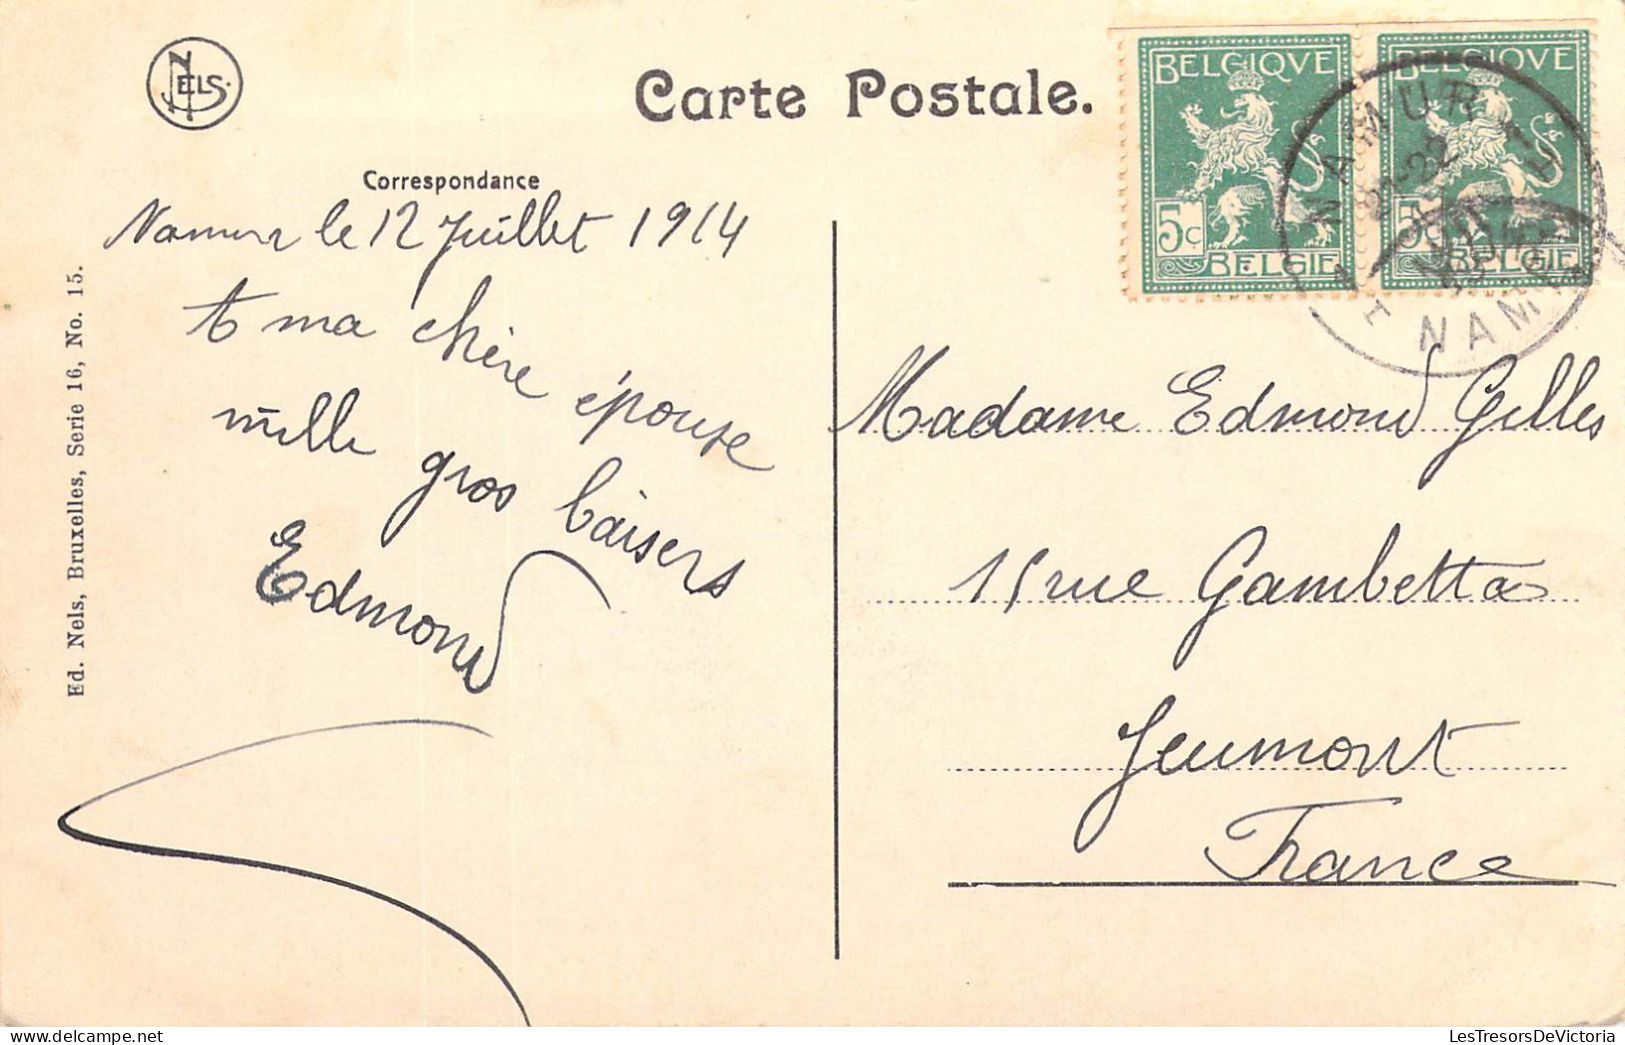 NELS.
Carte Postale.
Correspondance
Namur le 12 Juillet 1914
A ma chère épouse
mille gros baisers
Edmond
Ed. Nels, Bruxelles, Serie 16, No. 15.
BELGIQVE
5c
BELGIE
BELGIQVE
5c
BELGIE
NAMUR
NAMEN
Madame Edmond Gilles
15 rue Gambetta
Jeumont
France
LesTresorsDeVictoria